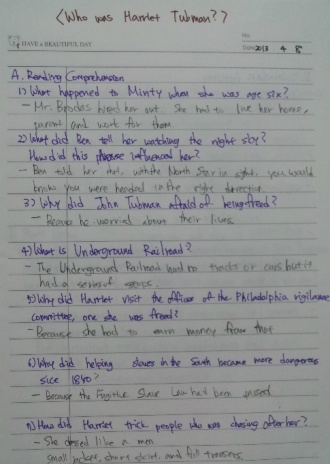 <Who was Harriet Tubman?>
HAVE A BEAUTIFUL DAY
No.
Date 2013 4 8
A. Reading Comprehension
1) What happened to Minty when she was age six?
- Mr. Brodas hired her out. She had to live her home,
parent and work for them
2) What did Ben tell her watching the night sky?
How did this influenced her?
- Ben told her that, with the North Star in sight, you would
know you were headed in the right direction.
3) Why did John Tubman afraid of being freed?
- Because he worried about their lives.
4) What is Underground Railroad?
- The Underground Railroad had no tracks or cars but it
had a series of stops.
5) Why did Harriet visit the office of the Philadelphia vigilance
committee, one she was freed?
- Because she had to earn money from that
6) Why did helping slaves in the South became more dangerous
sice 1840?
- Because the Fugitive Slave Law had been passed
7) How did Harriet trick people who was chasing after her?
- She dressed like a men
small jacket, short skirt, and full trousers.